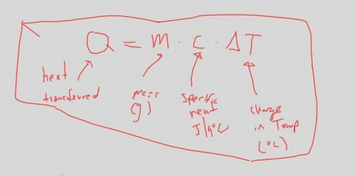 Q = m · c · ΔT
heat
transfered
mass
(g)
specific
heat
J/g°C
change
in Temp
(°C)